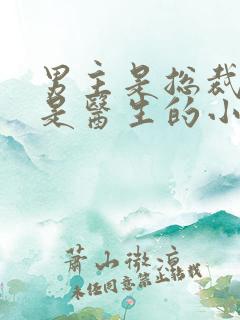 男主是总裁
是医生的小
萧山微凉
未经同意禁止转载